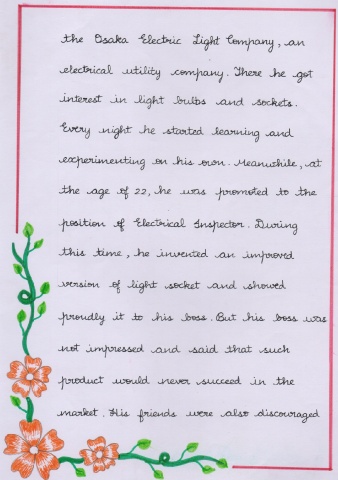 the Osaka Electric Light Company, an
electrical utility company. There he got
interest in light bulbs and sockets.
Every night he started learning and
experimenting on his own. Meanwhile, at
the age of 22, he was promoted to the
position of Electrical Inspector. During
this time, he invented an improved
version of light socket and showed
proudly it to his boss. But his boss was
not impressed and said that such
product would never succeed in the
market. His friends were also discouraged